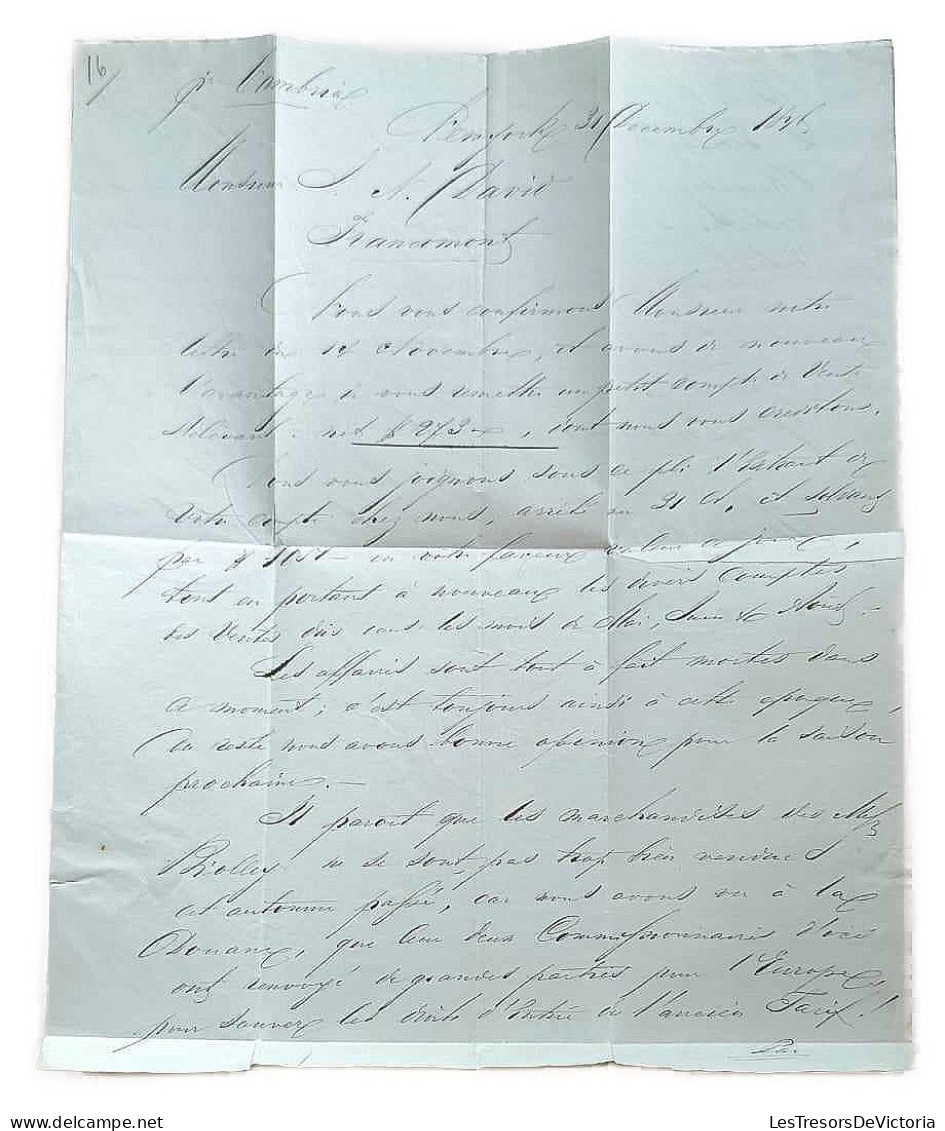 16
pr Cambria
Newyork 31 Decembre 1846
Monsieur J. N. David
Francomont
Nous vous confirmons Monsieur notre
lettre du 14 Novembre, et avons de nouveau
l'avantage de vous remettre un petit compte de Vente
s'élevant net $ 273 , dont nous vous creditons.
Nous vous joignons sous ce pli l'Extrait de
votre compte chez nous, arrêté au 31 ct, et soldant
par $ en votre faveur valeur ce jour,
tout en portant à nouveau les divers comptes
des Ventes dûs tous les mois de Mai, Juin & Août.
Les affaires sont tout à fait mortes dans
ce moment; c'est toujours ainsi à cette epoque,
du reste nous avons bonne opinion pour la saison
prochaine.
Il parait que les marchandises des Mss
Biolley ne se sont pas trop bien vendues
cet automne passé, car nous avons vu à la
Douane, que leur deux Commissionnaires d'ici
ont renvoyé de grandes parties pour l'Europe,
pour sauver les droits d'Entrée de l'ancien Tarif!
LesTresorsDeVictoria.com